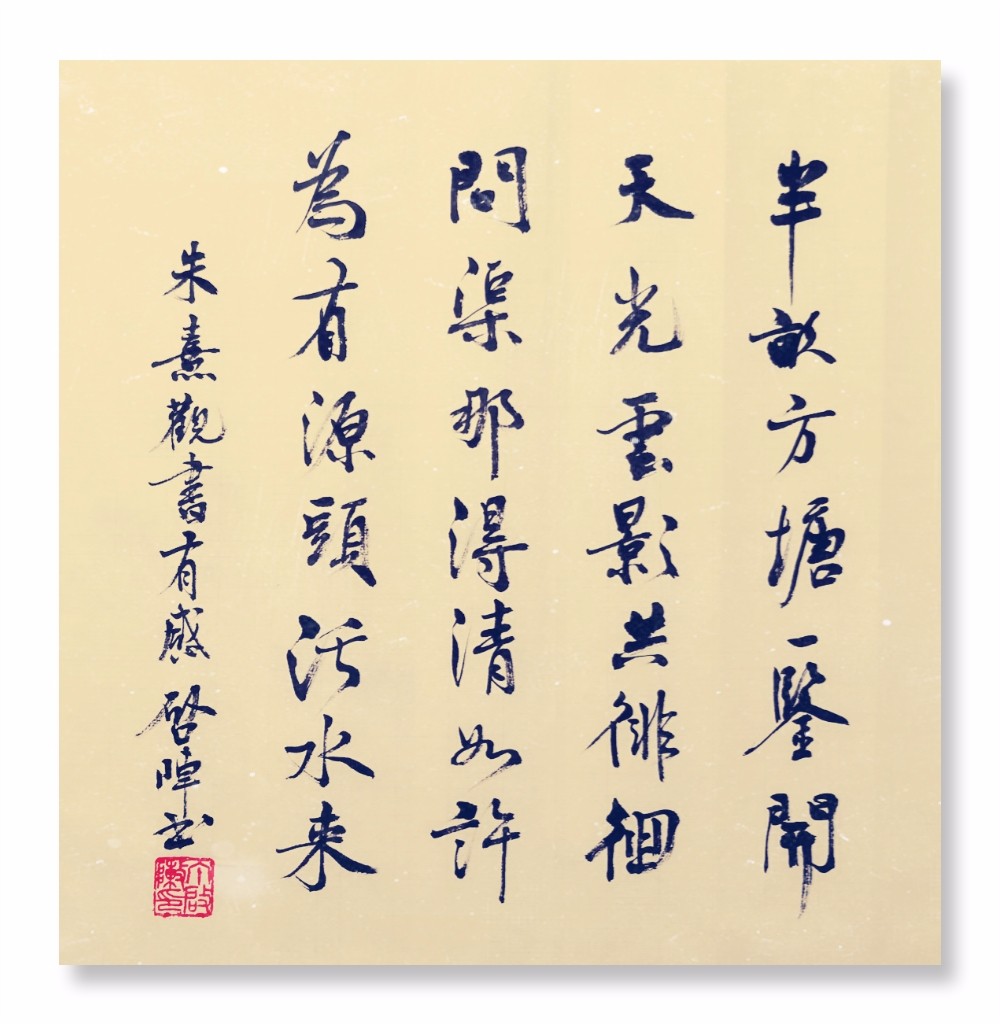 半畝方塘一鑒開
天光雲影共徘徊
問渠那得清如許
為有源頭活水来
朱熹觀書有感 啓暐书